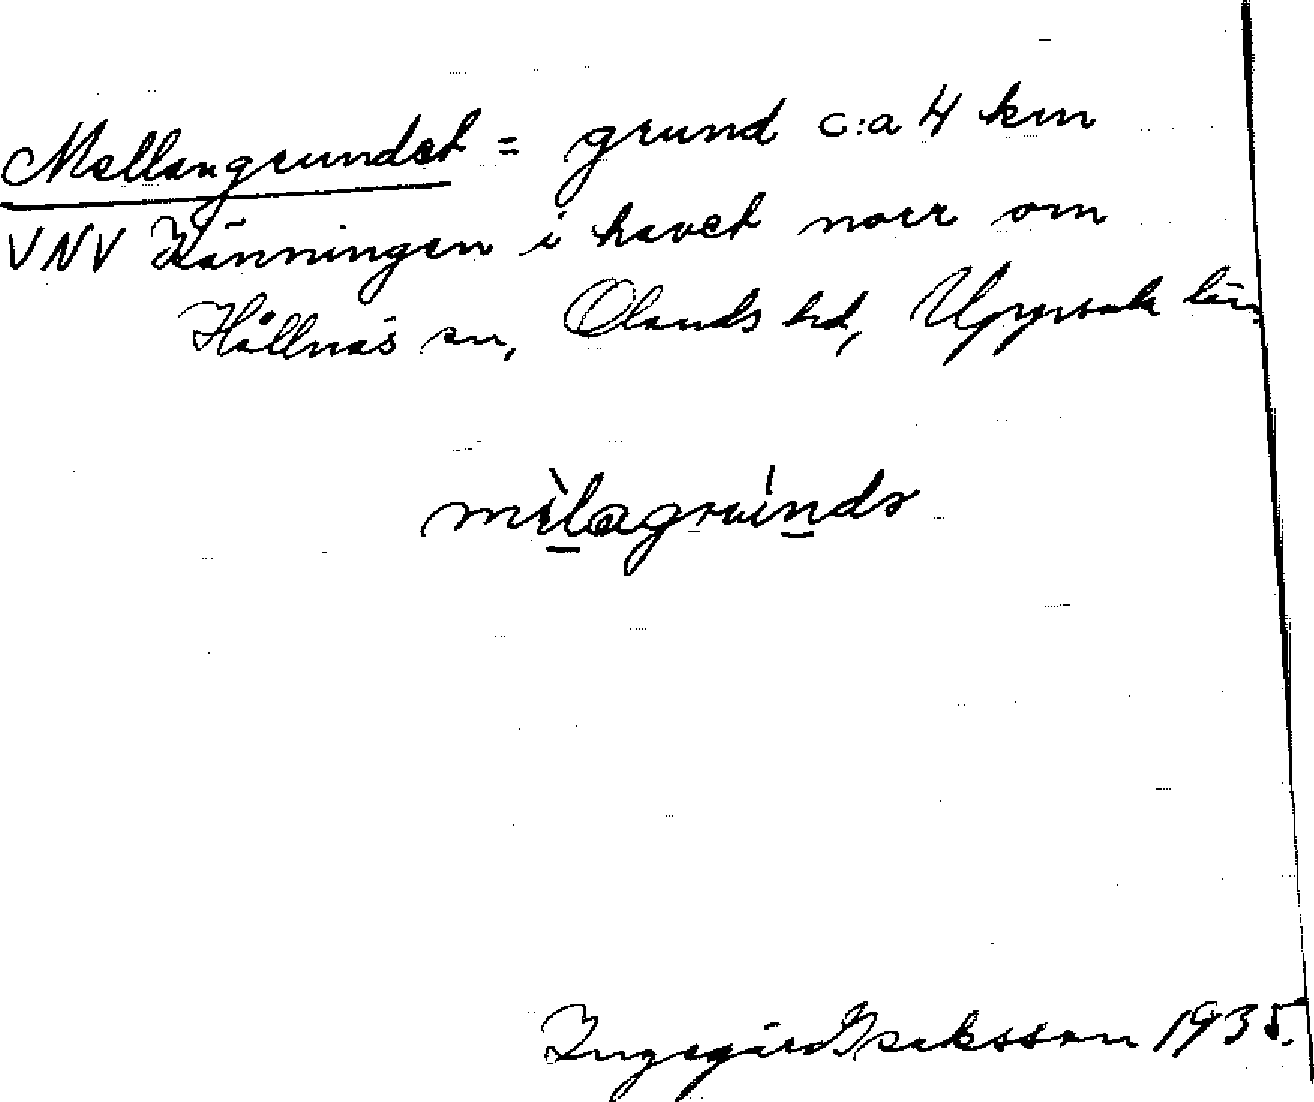 Mellangrundet = grund c:a 4 km
VNV Känningen i havet norr om
Hållnäs sn, Olands hd, Uppsala län.
Ingegärd Isaksson 1935.